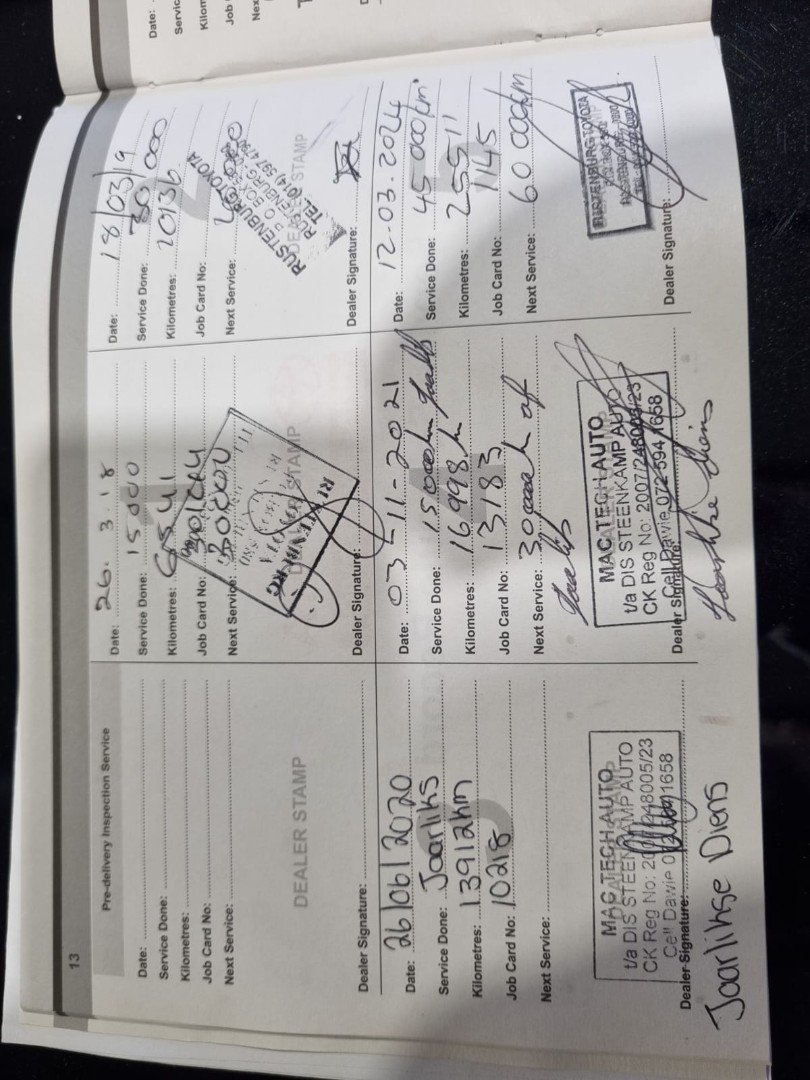 13
Pre-delivery Inspection Service
Date:
Service Done:
Kilometres:
Job Card No:
Next Service:
DEALER STAMP
Dealer Signature:
Date: 26. 3. 18
Service Done: 15 000
Kilometres:
Job Card No:
Next Service: 30000
DEALER STAMP
Dealer Signature:
Date: 18/03/19
Service Done: 30 000
Kilometres: 20136
Job Card No:
Next Service:
RUSTENBURG TOYOTA
P.O. BOX
RUSTENBURG
TEL: (014) 597
DEALER STAMP
Dealer Signature:
Date: 26/06/2020
Service Done: Jaarliks
Kilometres: 13912km
Job Card No: 10218
Next Service:
MAC TECH AUTO
t/a DIS STEENKAMP AUTO
CK Reg No: 2007/248005/23
Cell Dawie 1658
Dealer Signature:
Jaarlikse Diens
Date: 03-11-2021
Service Done: 15000km
Kilometres: 16998
Job Card No: 13183
Next Service: 30000 of
MAC TECH AUTO
t/a DIS STEENKAMP AUTO
CK Reg No: 2007/248005/23
Cell Dawie 072 594 1658
Dealer Signature:
Jaarlikse diens
Date: 12-03-2024
Service Done: 45 000km
Kilometres: 25511
Job Card No: 1145
Next Service: 60 000km
RUSTENBURG TOYOTA
Dealer Signature:
Date: